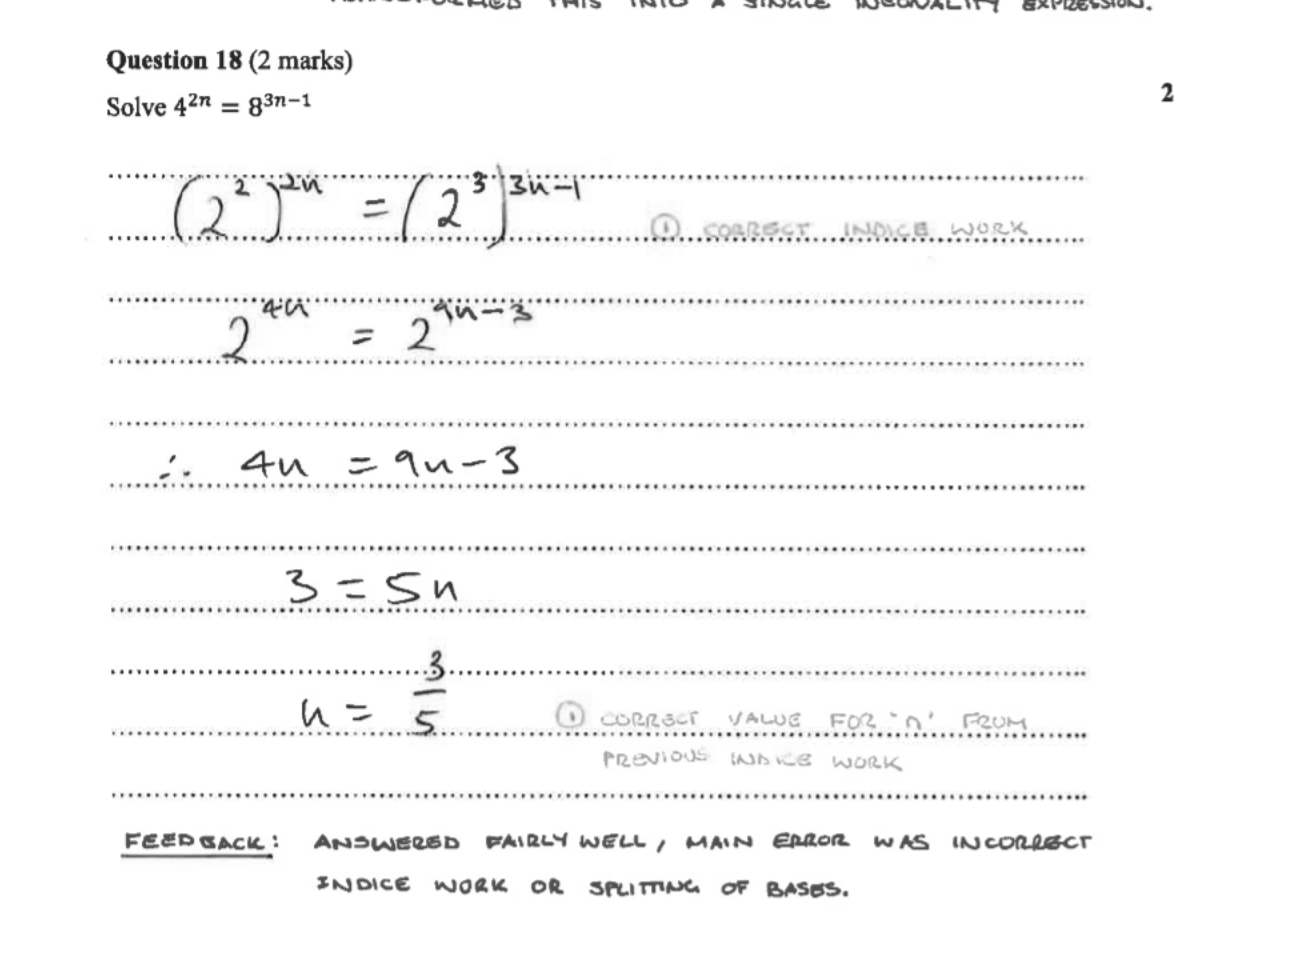 TRANSFORMED THIS INTO A SINGLE INEQUALITY EXPRESSION.
Question 18 (2 marks)
2
Solve 4^{2n} = 8^{3n−1}
(2^2)^{2n} = (2^3)^{3n−1}
① CORRECT INDICE WORK
2^{4n} = 2^{9n−3}
∴ 4n = 9n − 3
3 = 5n
n = 3/5
① CORRECT VALUE FOR 'n' FROM
PREVIOUS INDICE WORK
FEEDBACK: ANSWERED FAIRLY WELL, MAIN ERROR WAS INCORRECT
INDICE WORK OR SPLITTING OF BASES.